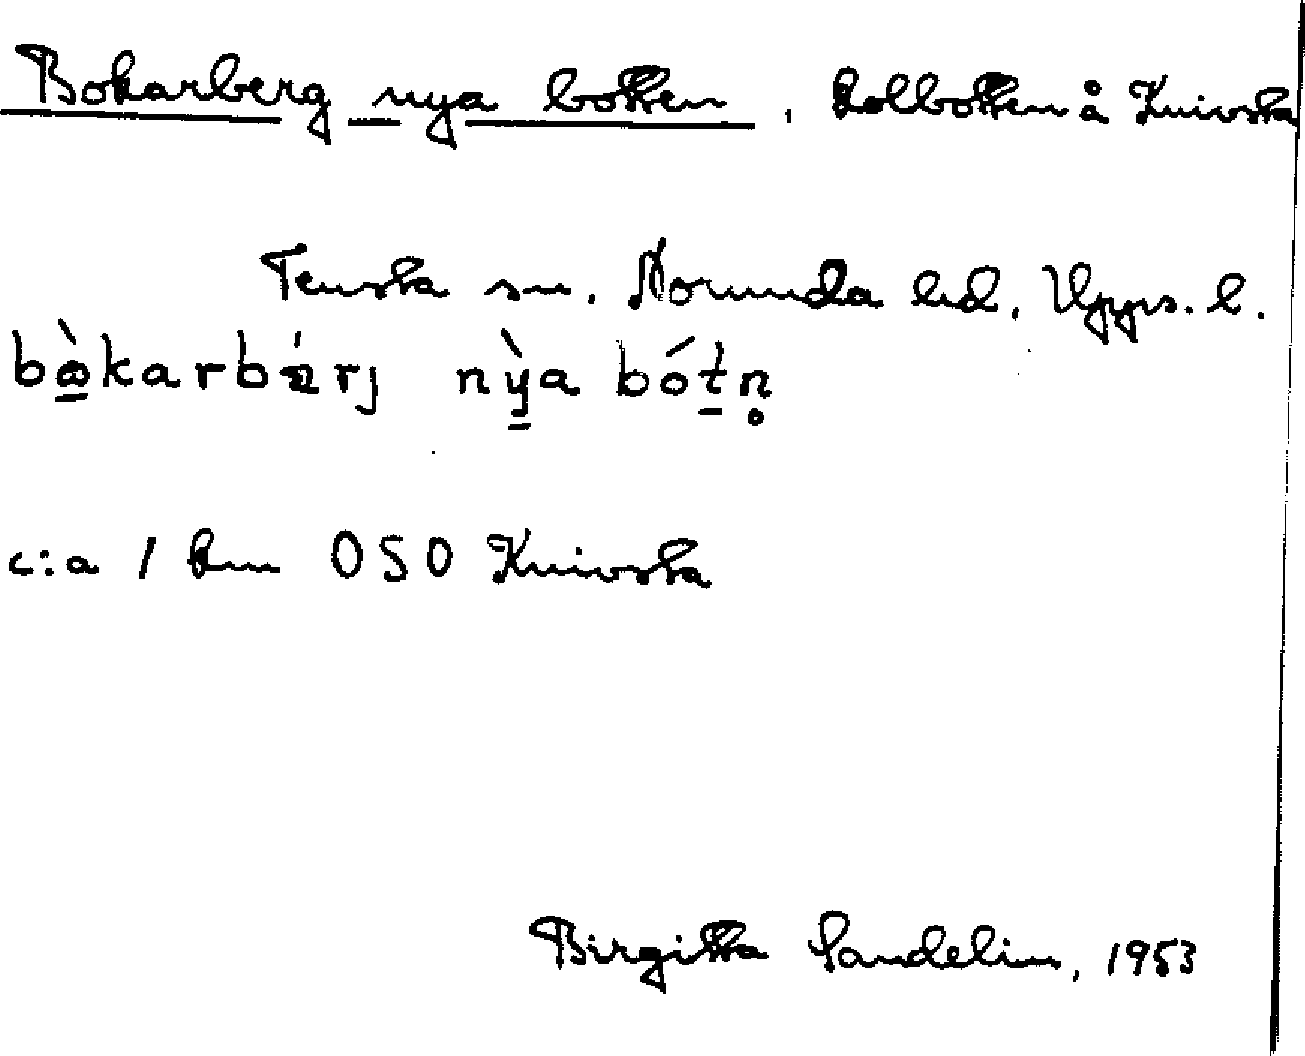 Bokarberg nya botten, Kolbotten å Knivsta
Tensta sn. Norunda hd. Upps. l.
bò̱karbǽrj nỳ̱a bót̠n̥
c:a 1 km OSO Knivsta
Birgitta Sandelin, 1953